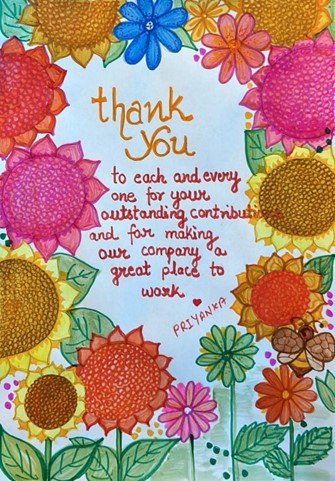 thank
you
to each and every
one for your
outstanding contributi
and for making
our company a
great place to
work
PRIYANKA